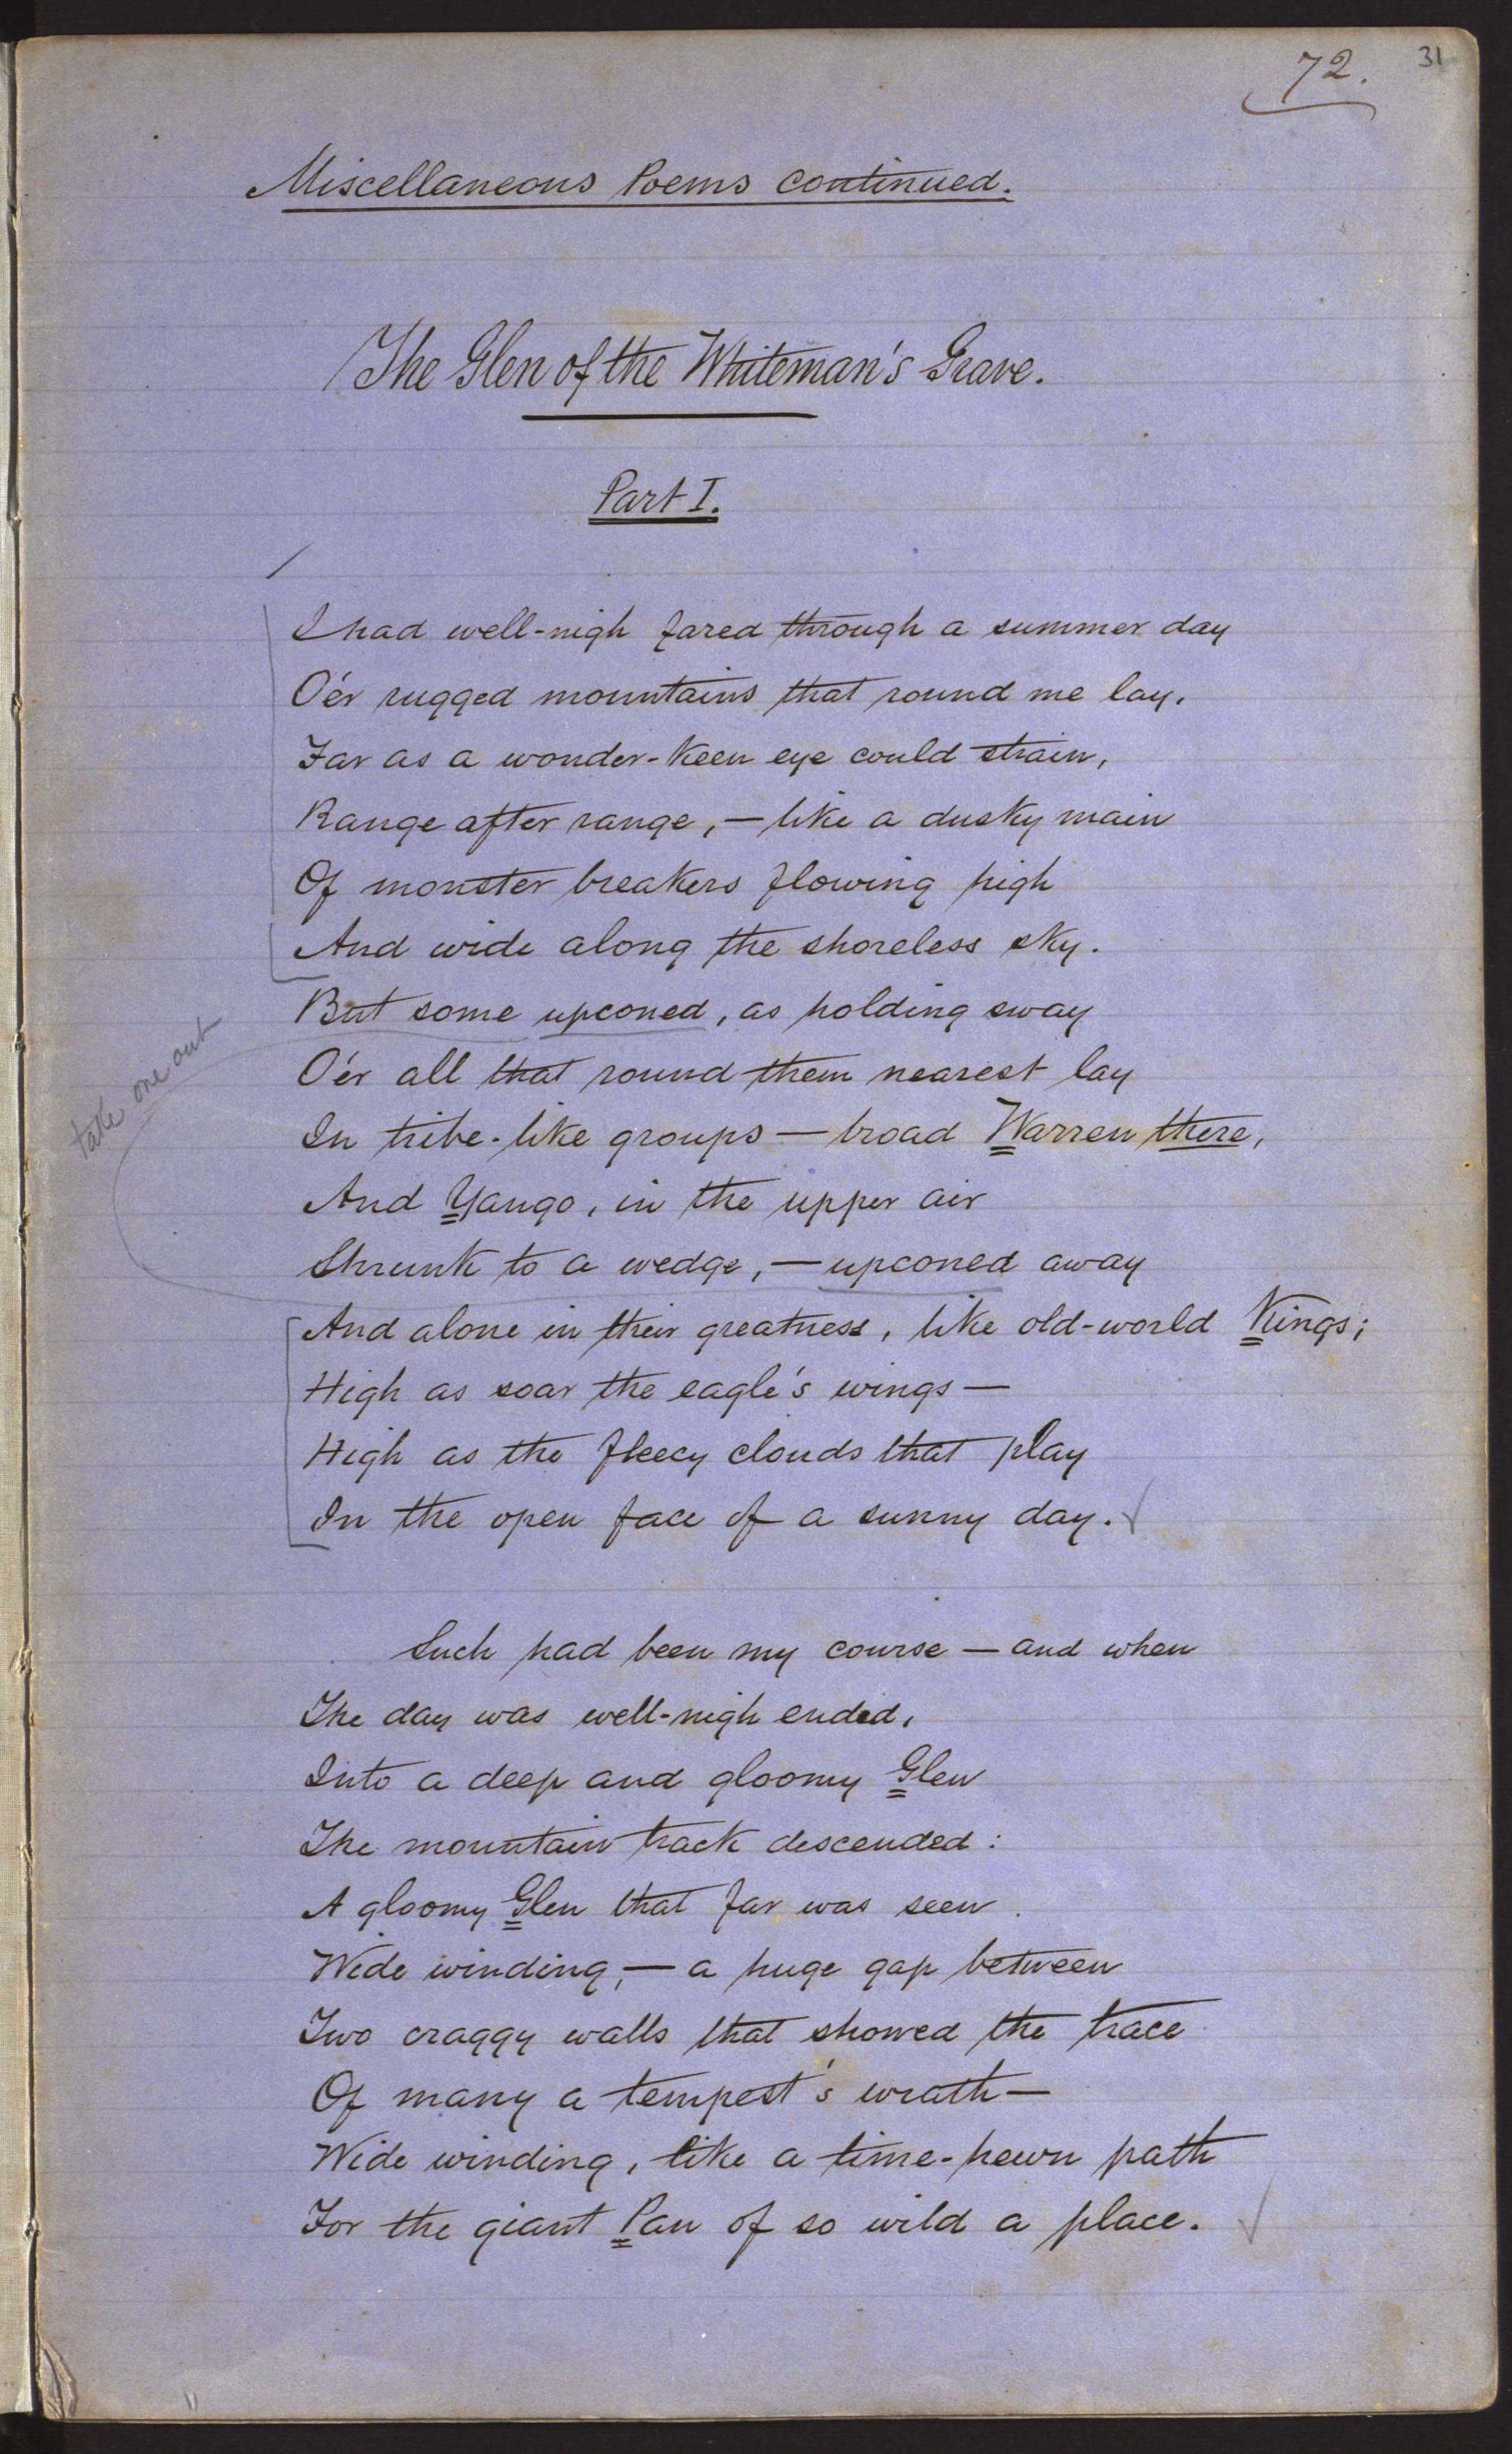 72.
31
Miscellaneous Poems continued.
The Glen of the Whiteman's Grave.
Part I.
I had well-nigh fared through a summer day
O'er rugged mountains that round me lay,
Far as a wonder-keen eye could strain,
Range after range, — like a dusky main
Of monster breakers flowing high
And wide along the shoreless sky.
But some upconed, as holding sway
O'er all that round them nearest lay
take one out
In tribe-like groups — broad Warren there,
And Yango, in the upper air
Shrunk to a wedge, — upconed away
And alone in their greatness, like old-world Kings;
High as soar the eagle's wings —
High as the fleecy clouds that play
In the open face of a sunny day.
Such had been my course — and when
The day was well-nigh ended,
Into a deep and gloomy Glen
The mountain track descended:
A gloomy Glen that far was seen
Wide winding, — a huge gap between
Two craggy walls that showed the trace
Of many a tempest's wrath —
Wide winding, like a time-hewn path
For the giant Pan of so wild a place.